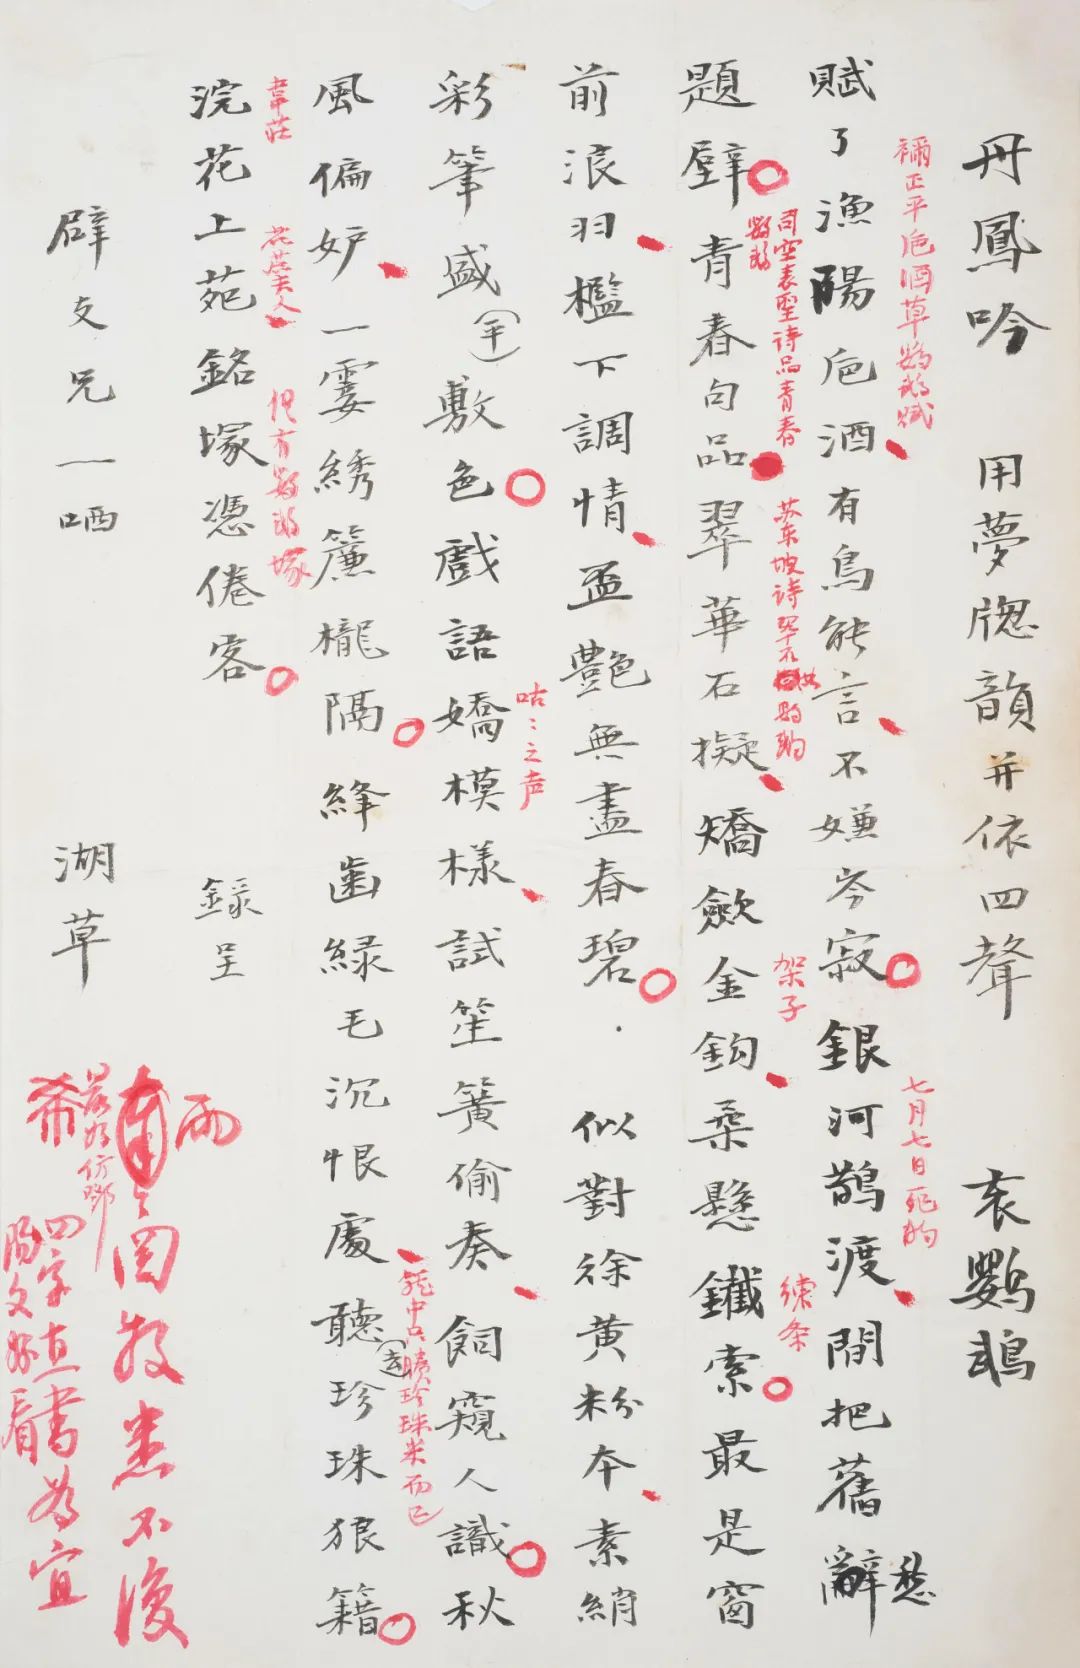 丹鳳吟 用夢牕韻并依四聲 哀鸚鵡
禰正平巵酒草鸚鵡賦
七月七日死的
賦了漁陽巵酒有鳥能言不嫌岑寂銀河鵲渡閒把舊辭愁
司空表聖诗品青春鸚鵡
苏东坡诗翠石
架子
練条
題壁青春句品翠華石擬矯斂金鉤桑懸鐵索最是窗
前浪羽檻下調情盃艷無盡春碧 似對徐黄粉本素綃
咕〻之声
彩筆盛(平)敷色戲語嬌模樣試笙簧偷奏飼窺人識秋
瓶中只賸珍珠米而已
風偏妒一霎綉簾櫳隔絳齒緑毛沉恨處聽(去)珍珠狼籍
韋莊
花蕊夫人
但有鸚鵡塚
浣花上苑銘塚憑倦客 錄呈
雨
圈教悉不復
四字直書為宜
希
辟支兄一哂 湖草